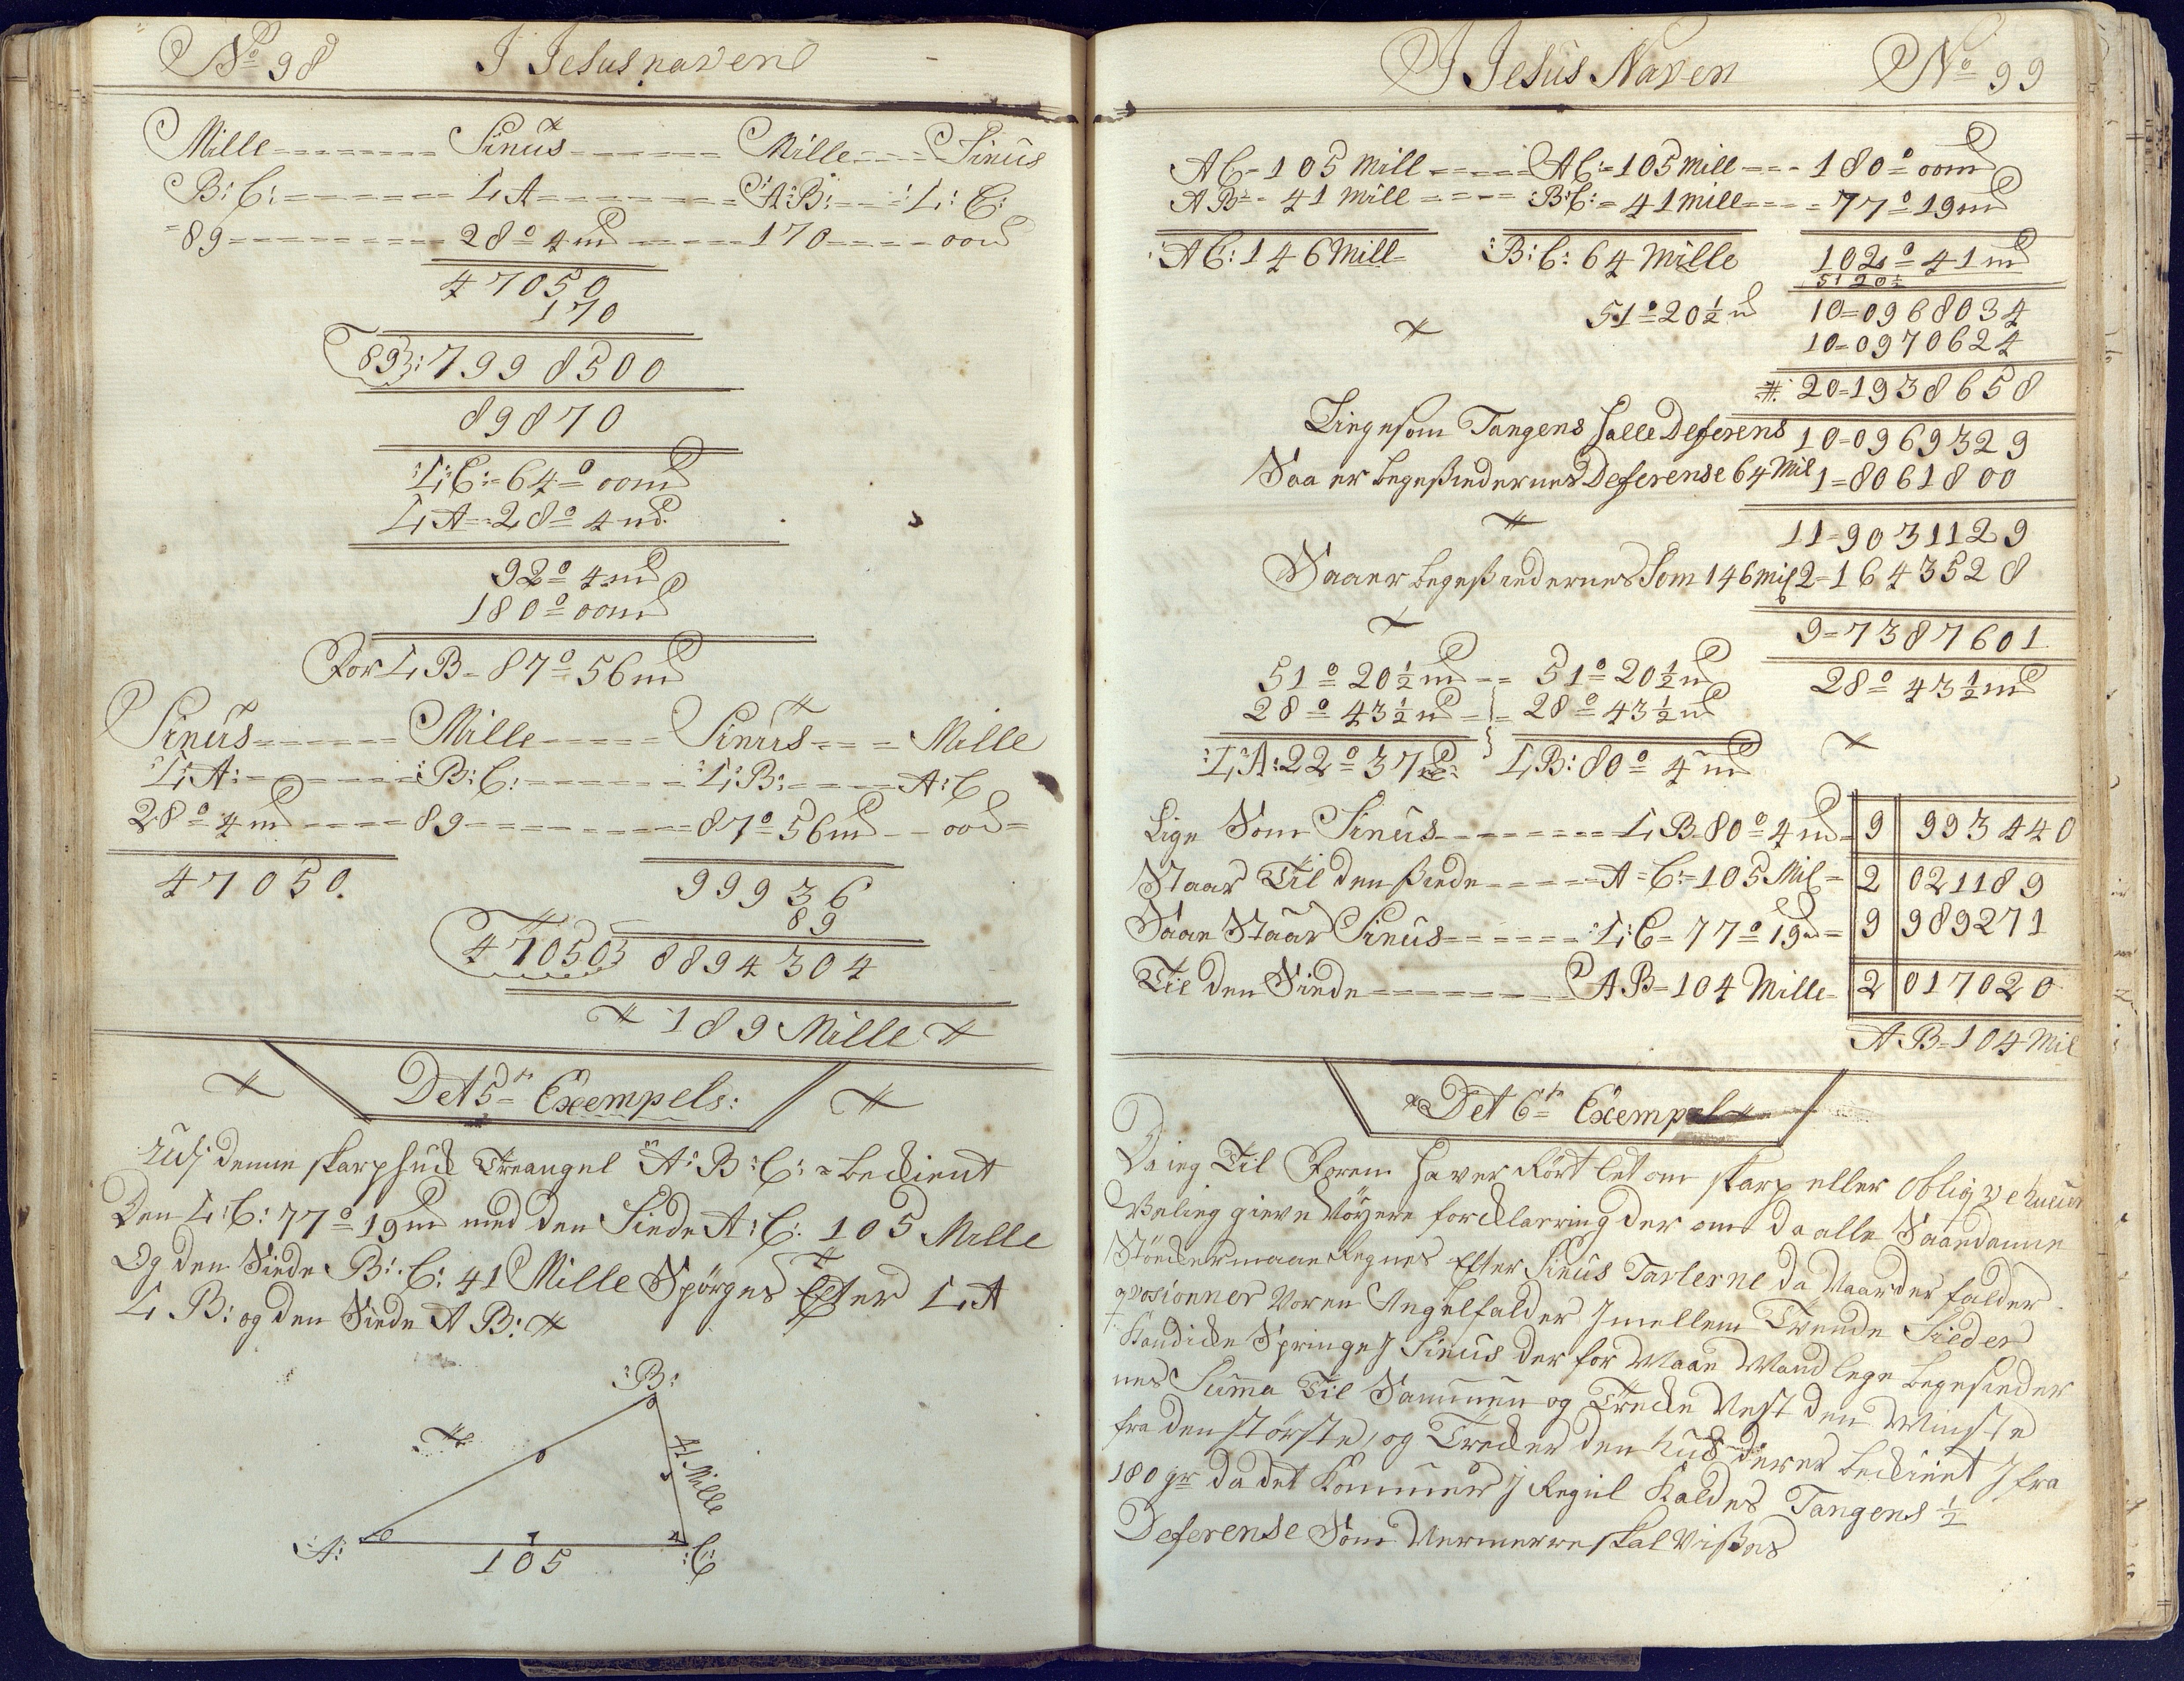 No 98 I Jesus naven
Mille Sinus Mille Sinus
B:C: L A A:B: L:C:
89 28° 4 m 170 00
47050
170
89 : 7998500
89870
L:C:= 64° 00m
L A= 28° 4 m
92° 4 m
180° 00m
For L B= 87° 56m
Sinus Mille Sinus Mille
L:A: B:C: L:B: A:C
28° 4 m 89 87° 56m 00
47050. 99936
89
47050 8894304
189 Mille
Det 5te Exempels:
denne skarphuck Treangel A:B:C: beckient
Den L:C: 77° 19m med den Siede A:C: 105 Mille
Og den Siede B:C: 41 Mille Spörges Efter L A
L B: og den Siede A B:
:B:
41 Mille
:A: :C:
105
I Jesus Naven No 99
AC= 105 Mill AC:= 105 Mill 180° 00m
AB= 41 Mill B:C:= 41 Mill 77° 19m
AC: 146 Mill B:C: 64 Mille 102° 41 m
51 20½
51° 20½ m 10=0968034
10=0970624
20=1938658
Liigesom Tangens halle Deferens 10=0969329
Saa er begeßiedernes Deferense 64 Mil 1=8061800
11=9031129
Saa er begeßiedernes Som 146 mil 2=1643528
9=7387601
51° 20½ m 51° 20½ m 28° 43½ m
28° 43½ m 28° 43½ m
:L:A: 22° 37 L B: 80° 4 m
Lige Som Sinus L B 80° 4 m 9 993440
Staar Til den ßiede A=C:=105 Mil 2 021189
Saae Staar Sinus L:C= 77° 19 9 989271
Til den Siede AB= 104 Mille 2 017020
A B=104 Mil
Det 6te Exempel
Da ieg Til Foren haver Rört let om skarp eller obliqve
Vil ieg gieve Nöyere forcklarring der om da alle Saadanne
Stöcker maae Regnes Efter Sinus Tavlerne da Naar der falder
qvosionner Voren Angel falder Imellem Tvende Sieder
Kand icke Springe I Sinus der for Maae Mand lege begesieder
nes Summa Til Sammen og Trecke Nest den Minste
fra den störste, og Trecker den huck der er beckient I fra
180 gr da det Kommer I Regul Kaldes Tangens ½
Deferense Som Nermerre skal Vißes